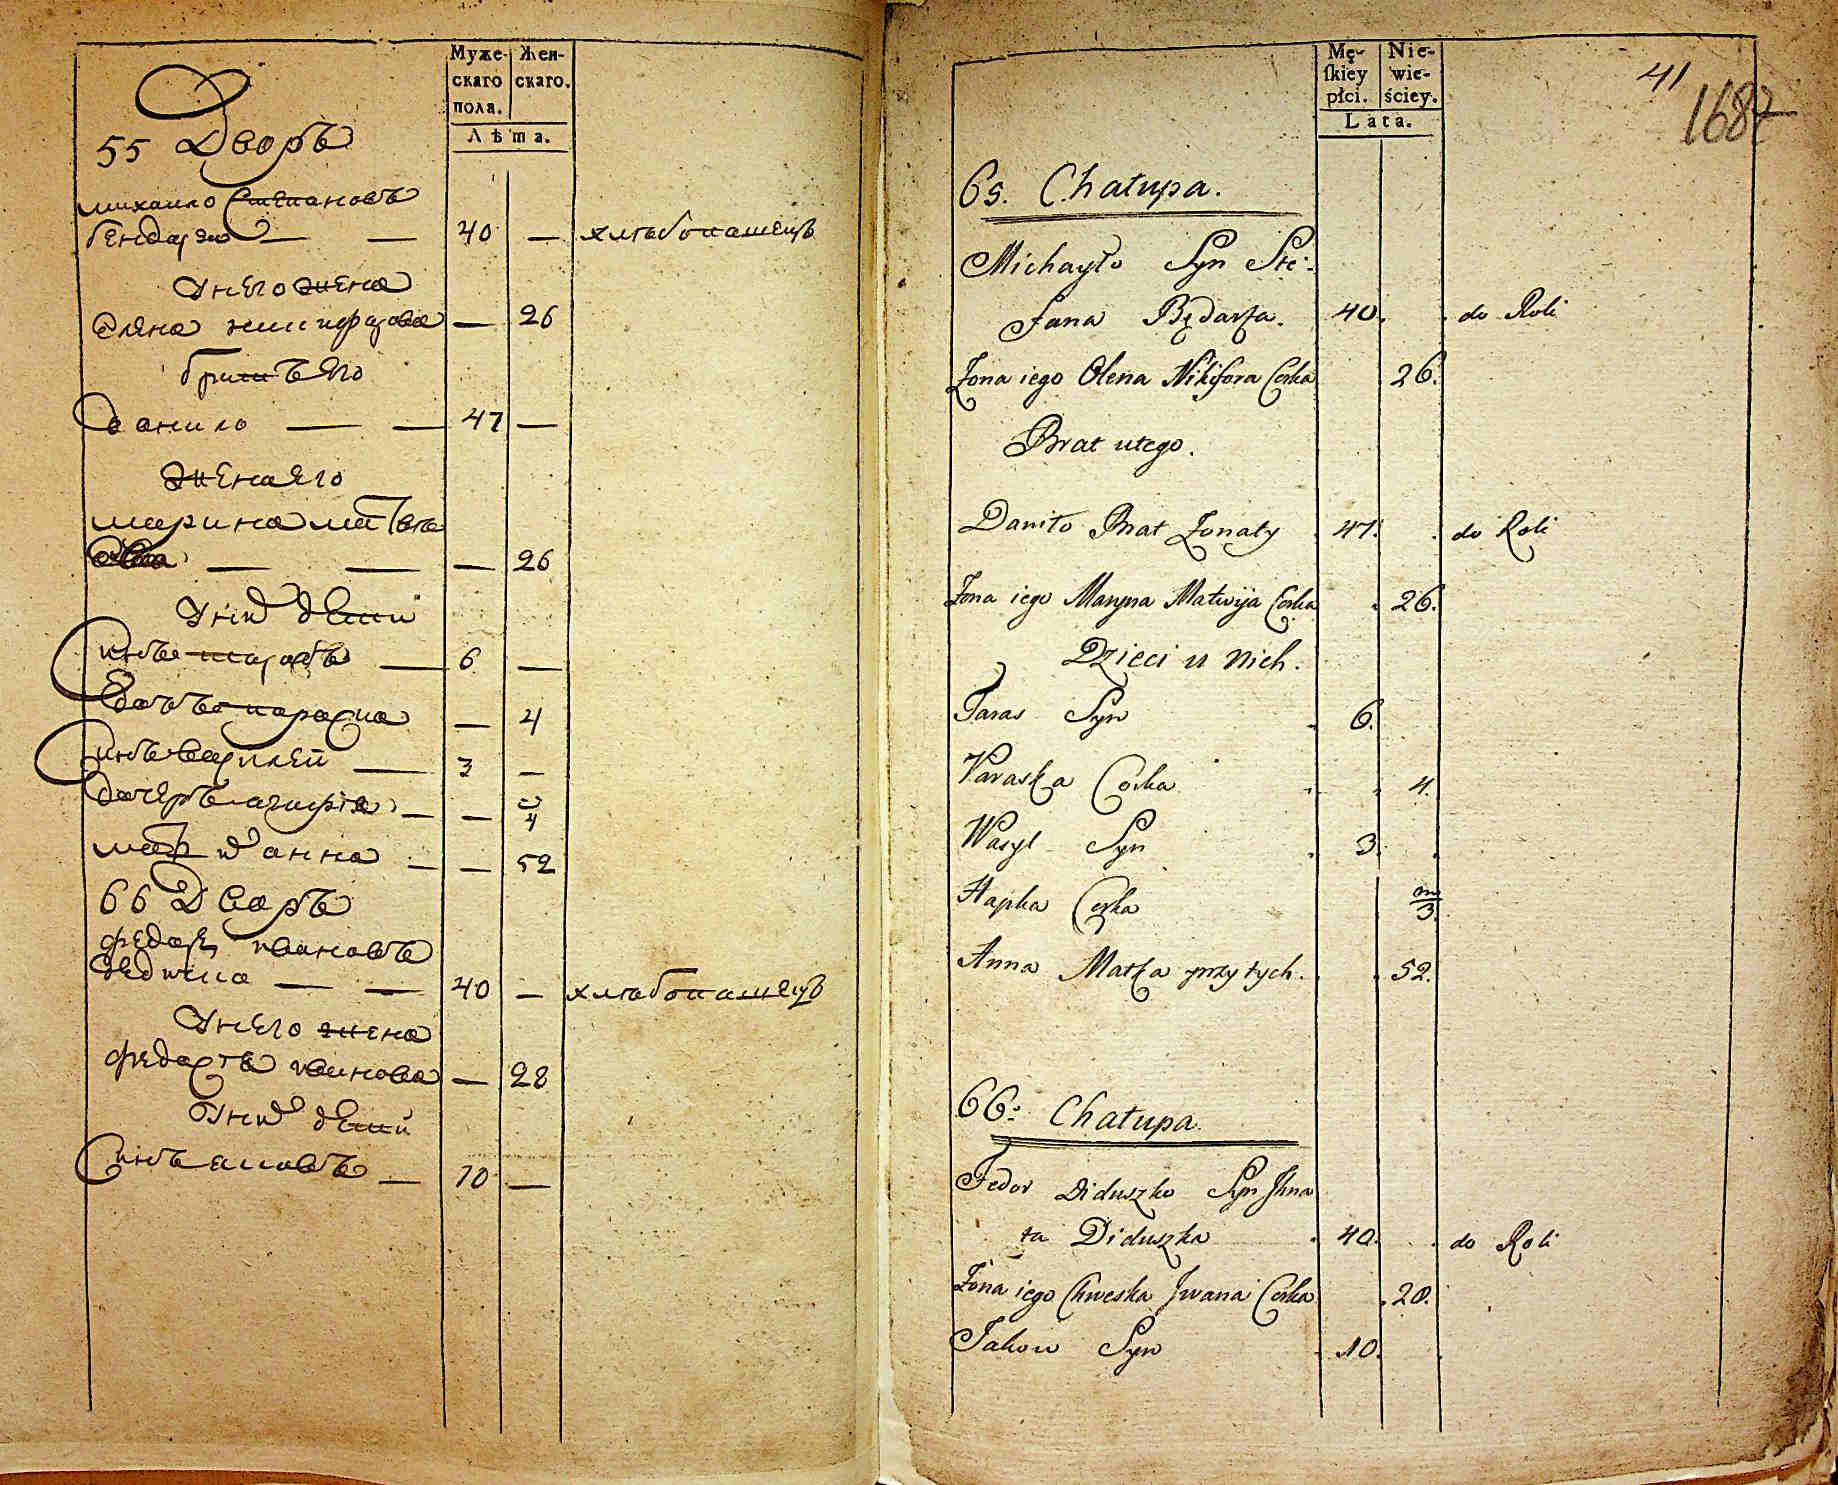 Муже-
скаго
пола.
Жен-
скаго.
Лѣта.
55 Дворъ
михаило Степановъ
бендарэи — — 40 — хлѣбопашецъ
Унего жена
Олена никифорова — 26
братъ его
данило — — 47 —
жена его
марина матвѣе
— — — 26
Уних дети
Синъ тарасъ — 6 —
дочъ параска — 4
Синъ василей — 3 —
дочеръ агафія — — 4
мат их анна — — 52
66 Дворъ
федор ивановъ
дедишка — — 40 — хлѣбопашецъ
Унего жена
федосія иванова — 28
Уних дети
Синъ яковъ — 10 —
Mę-
ſkiey
płci.
Nie-
wie-
ściey.
Lata.
41
1687
65. Chałupa.
Michayło Syn Ste-
fana Będarza. 40. do Roli
Zona iego Olena Nikifora Corka 26.
Brat utego.
Daniło Brat Zonaty 47. do Roli
Zona iego Maryna Matwija Corka 26.
Dzieci u nich.
Taras Syn 6.
Paraska Corka 4.
Wasyl Syn 3.
Hapka Corka m/3.
Anna Matka przy tych. 52.
66. Chałupa.
Fedor Diduszko Syn Ihna
ta Diduszka 40. do Roli
Zona iego Chweska Iwana Corka 28.
Jakow Syn 10.